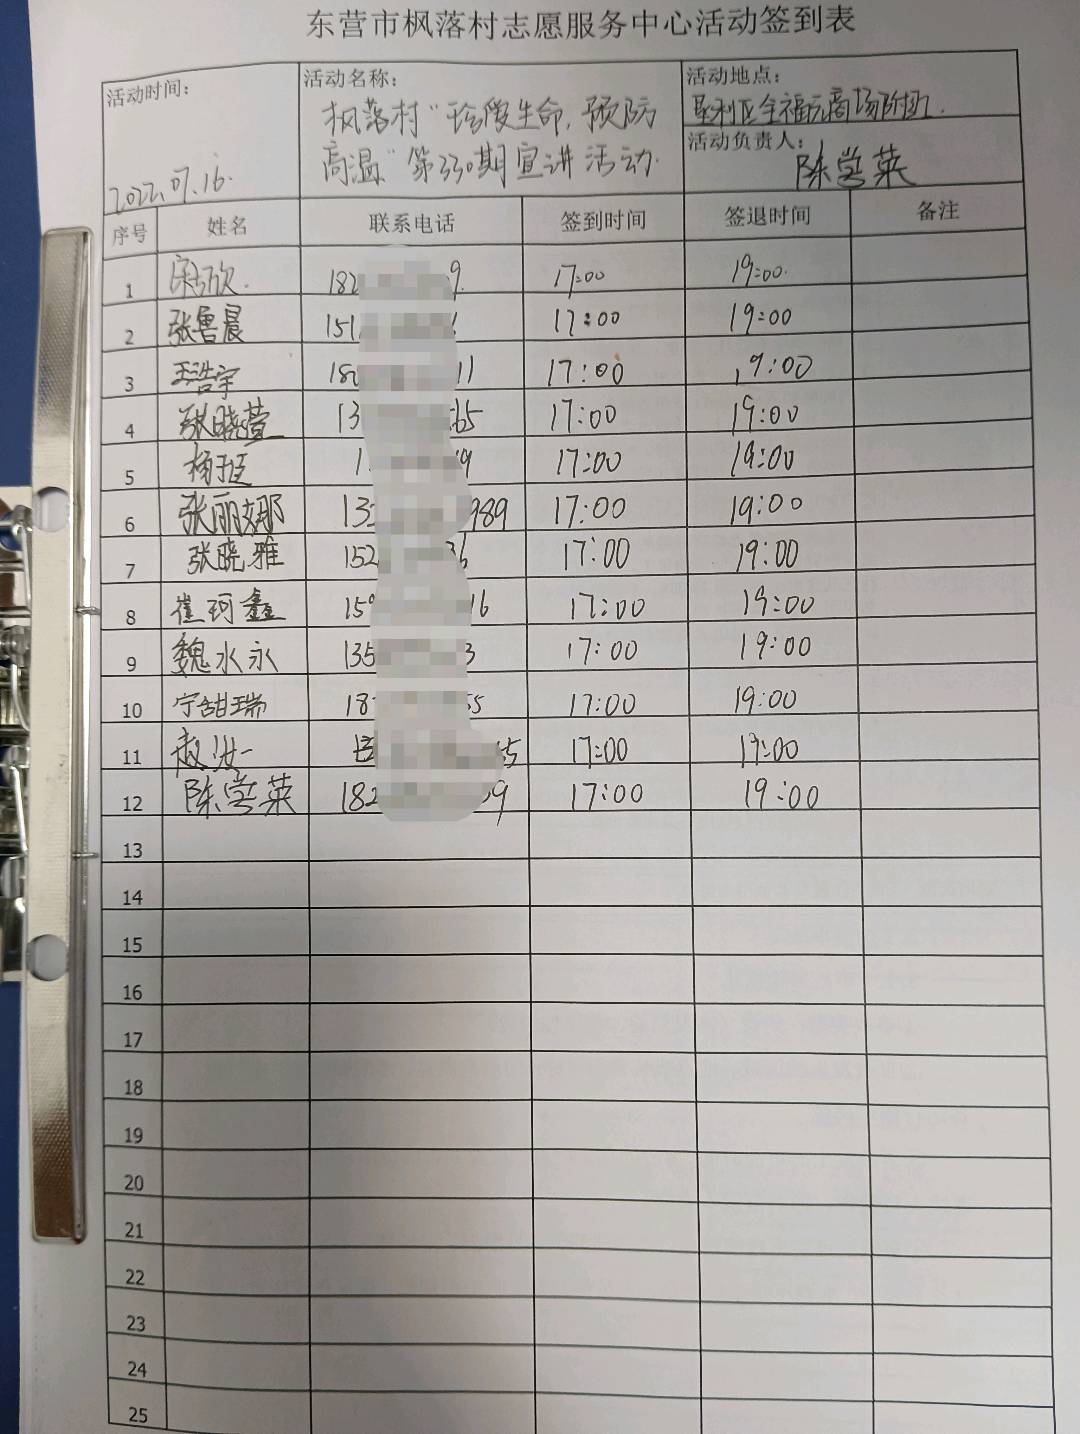 东营市枫落村志愿服务中心活动签到表
活动时间: 2022.07.16.
活动名称:
枫落村"珍爱生命,预防
高温"第330期宣讲活动.
活动地点:
垦利区全福元商场附近.
活动负责人:
陈学英
序号 姓名 联系电话 签到时间 签退时间 备注
1 182 9. 17:00 19:00.
2 张鲁晨 151 17:00 19:00
3 王浩宇 180 11 17:00 19:00
4 张晓萱 13 65 17:00 19:00
5 1 9 17:00 19:00
6 张丽娜 13 989 17:00 19:00
7 张晓雅 152 36 17:00 19:00
8 崔珂鑫 159 16 17:00 19:00
9 魏水永 135 3 17:00 19:00
10 宁甜瑞 18 55 17:00 19:00
11 赵汝一 5 17:00 19:00
12 陈学英 182 9 17:00 19:00
13
14
15
16
17
18
19
20
21
22
23
24
25